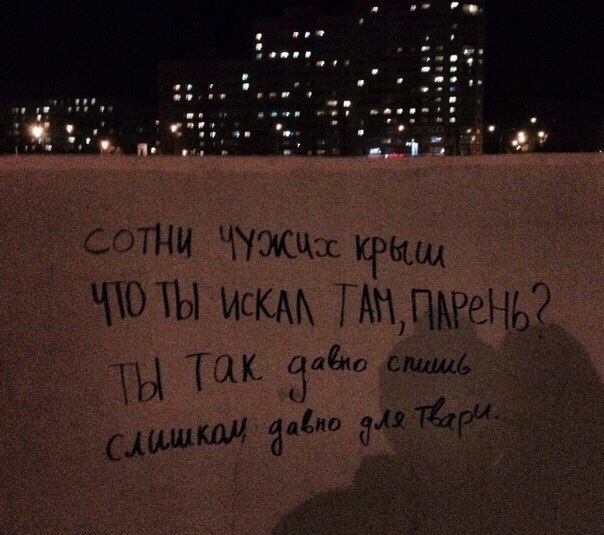 СОТНИ ЧУЖИХ КРЫШ
ЧТО ТЫ ИСКАЛ ТАМ, ПАРЕНЬ?
ТЫ ТАК давно спишь
Слишком давно для твари.